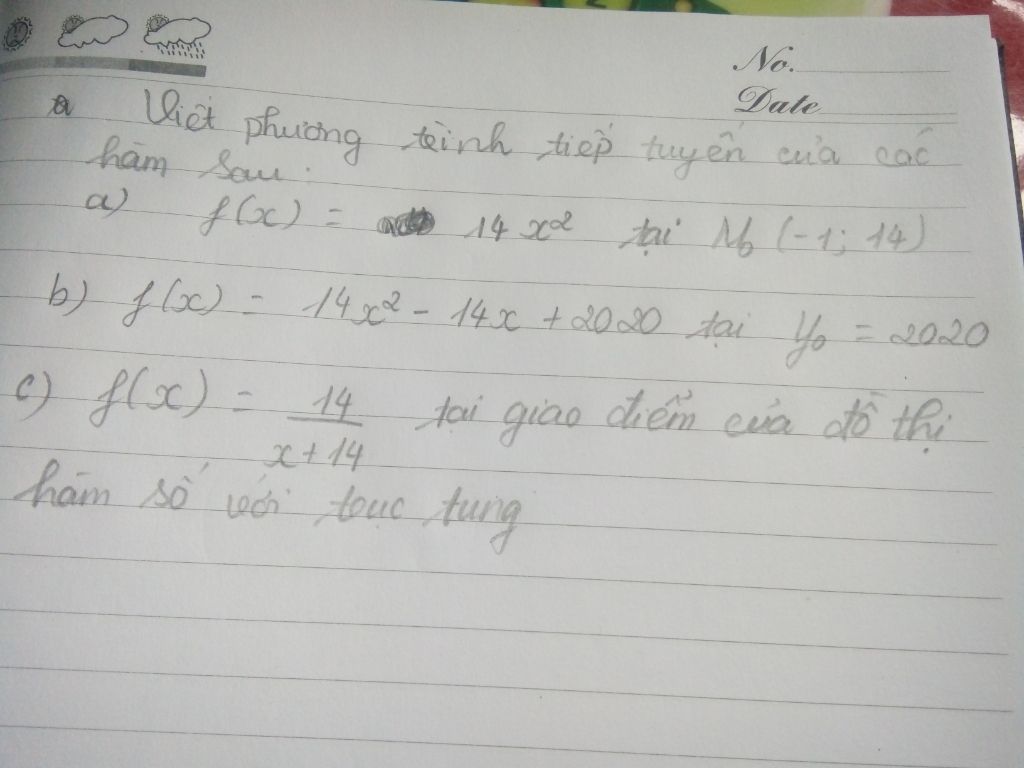 No.
Date
Viết phương trình tiếp tuyến của các
hàm sau:
a) f(x) = 14x² tại M₀ (-1; 14)
b) f(x) = 14x² - 14x + 2020 tại y₀ = 2020
c) f(x) = 14/(x+14) tại giao điểm của đồ thị
hàm số với trục tung